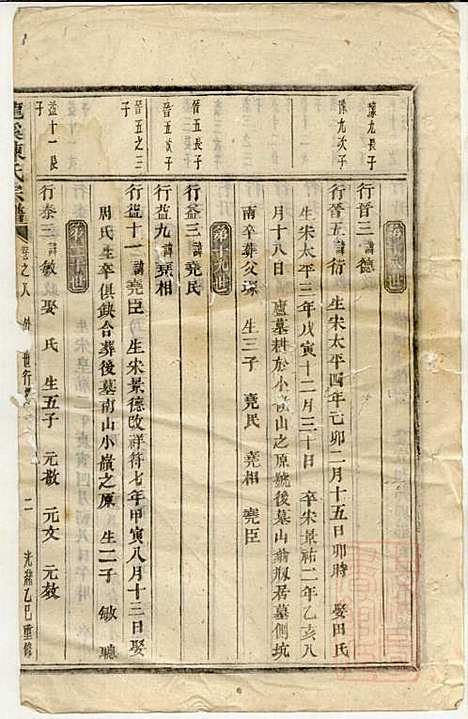 豫九長子
豫九次子
晉五長子
晉五次子
晉五之三子
益十一長子
行晉三諱德
行晉五諱衍 生宋太平四年己卯二月十五日卯時 娶田氏
生宋太平三年戊寅十二月三十日 卒宋景祐二年乙亥八
月十八日 廬墓耕於小嶺山之原號後墓山翁瓶居墓側坑
南卒葬父塚 生三子 堯民 堯相 堯臣
第十九世
行益三諱堯民
行益九諱堯相
行益十一諱堯臣 生宋景德改祥符七年甲寅八月十三日娶
周氏生卒俱缺合葬後墓南山小嶺之原 生二子 敏 聽
第二十世
行泰三諱敏娶 氏 生五子 元敖 元文 元教
龍溪陳氏宗譜 卷之八 外 世行 二 光緒乙巳重修